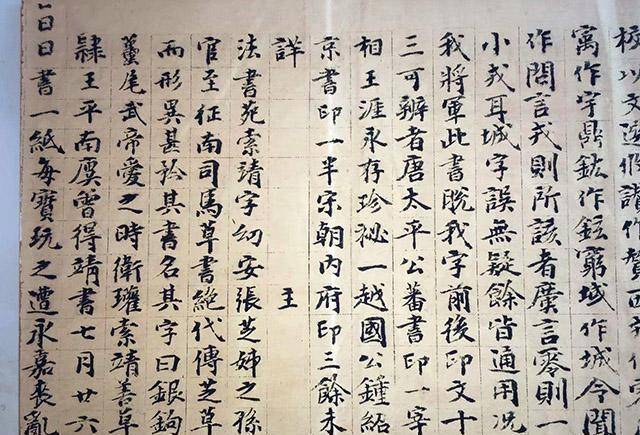 以文選
寓作宇鼎鉉作鈺窮域作城今聞
作閤言戎則所該者廣言零則一
小戎耳城字誤無疑餘皆通用况
我將軍此書脫我字前後印文十
三可辨者唐太平公蕃書印一宰
相王涯永存珍祕一越國公鍾紹
京書印一半宋朝内府印三餘未
詳 王
法書苑索靖字幼安張芝姊之孫
官至征南司馬草書絶代傳芝草
而形異甚矜其書名其字曰銀鉤
蠆尾武帝愛之時衛瓘索靖善草
隷王平南廙曾得靖書七月廿六
日書一紙每寶玩之遭永嘉喪亂